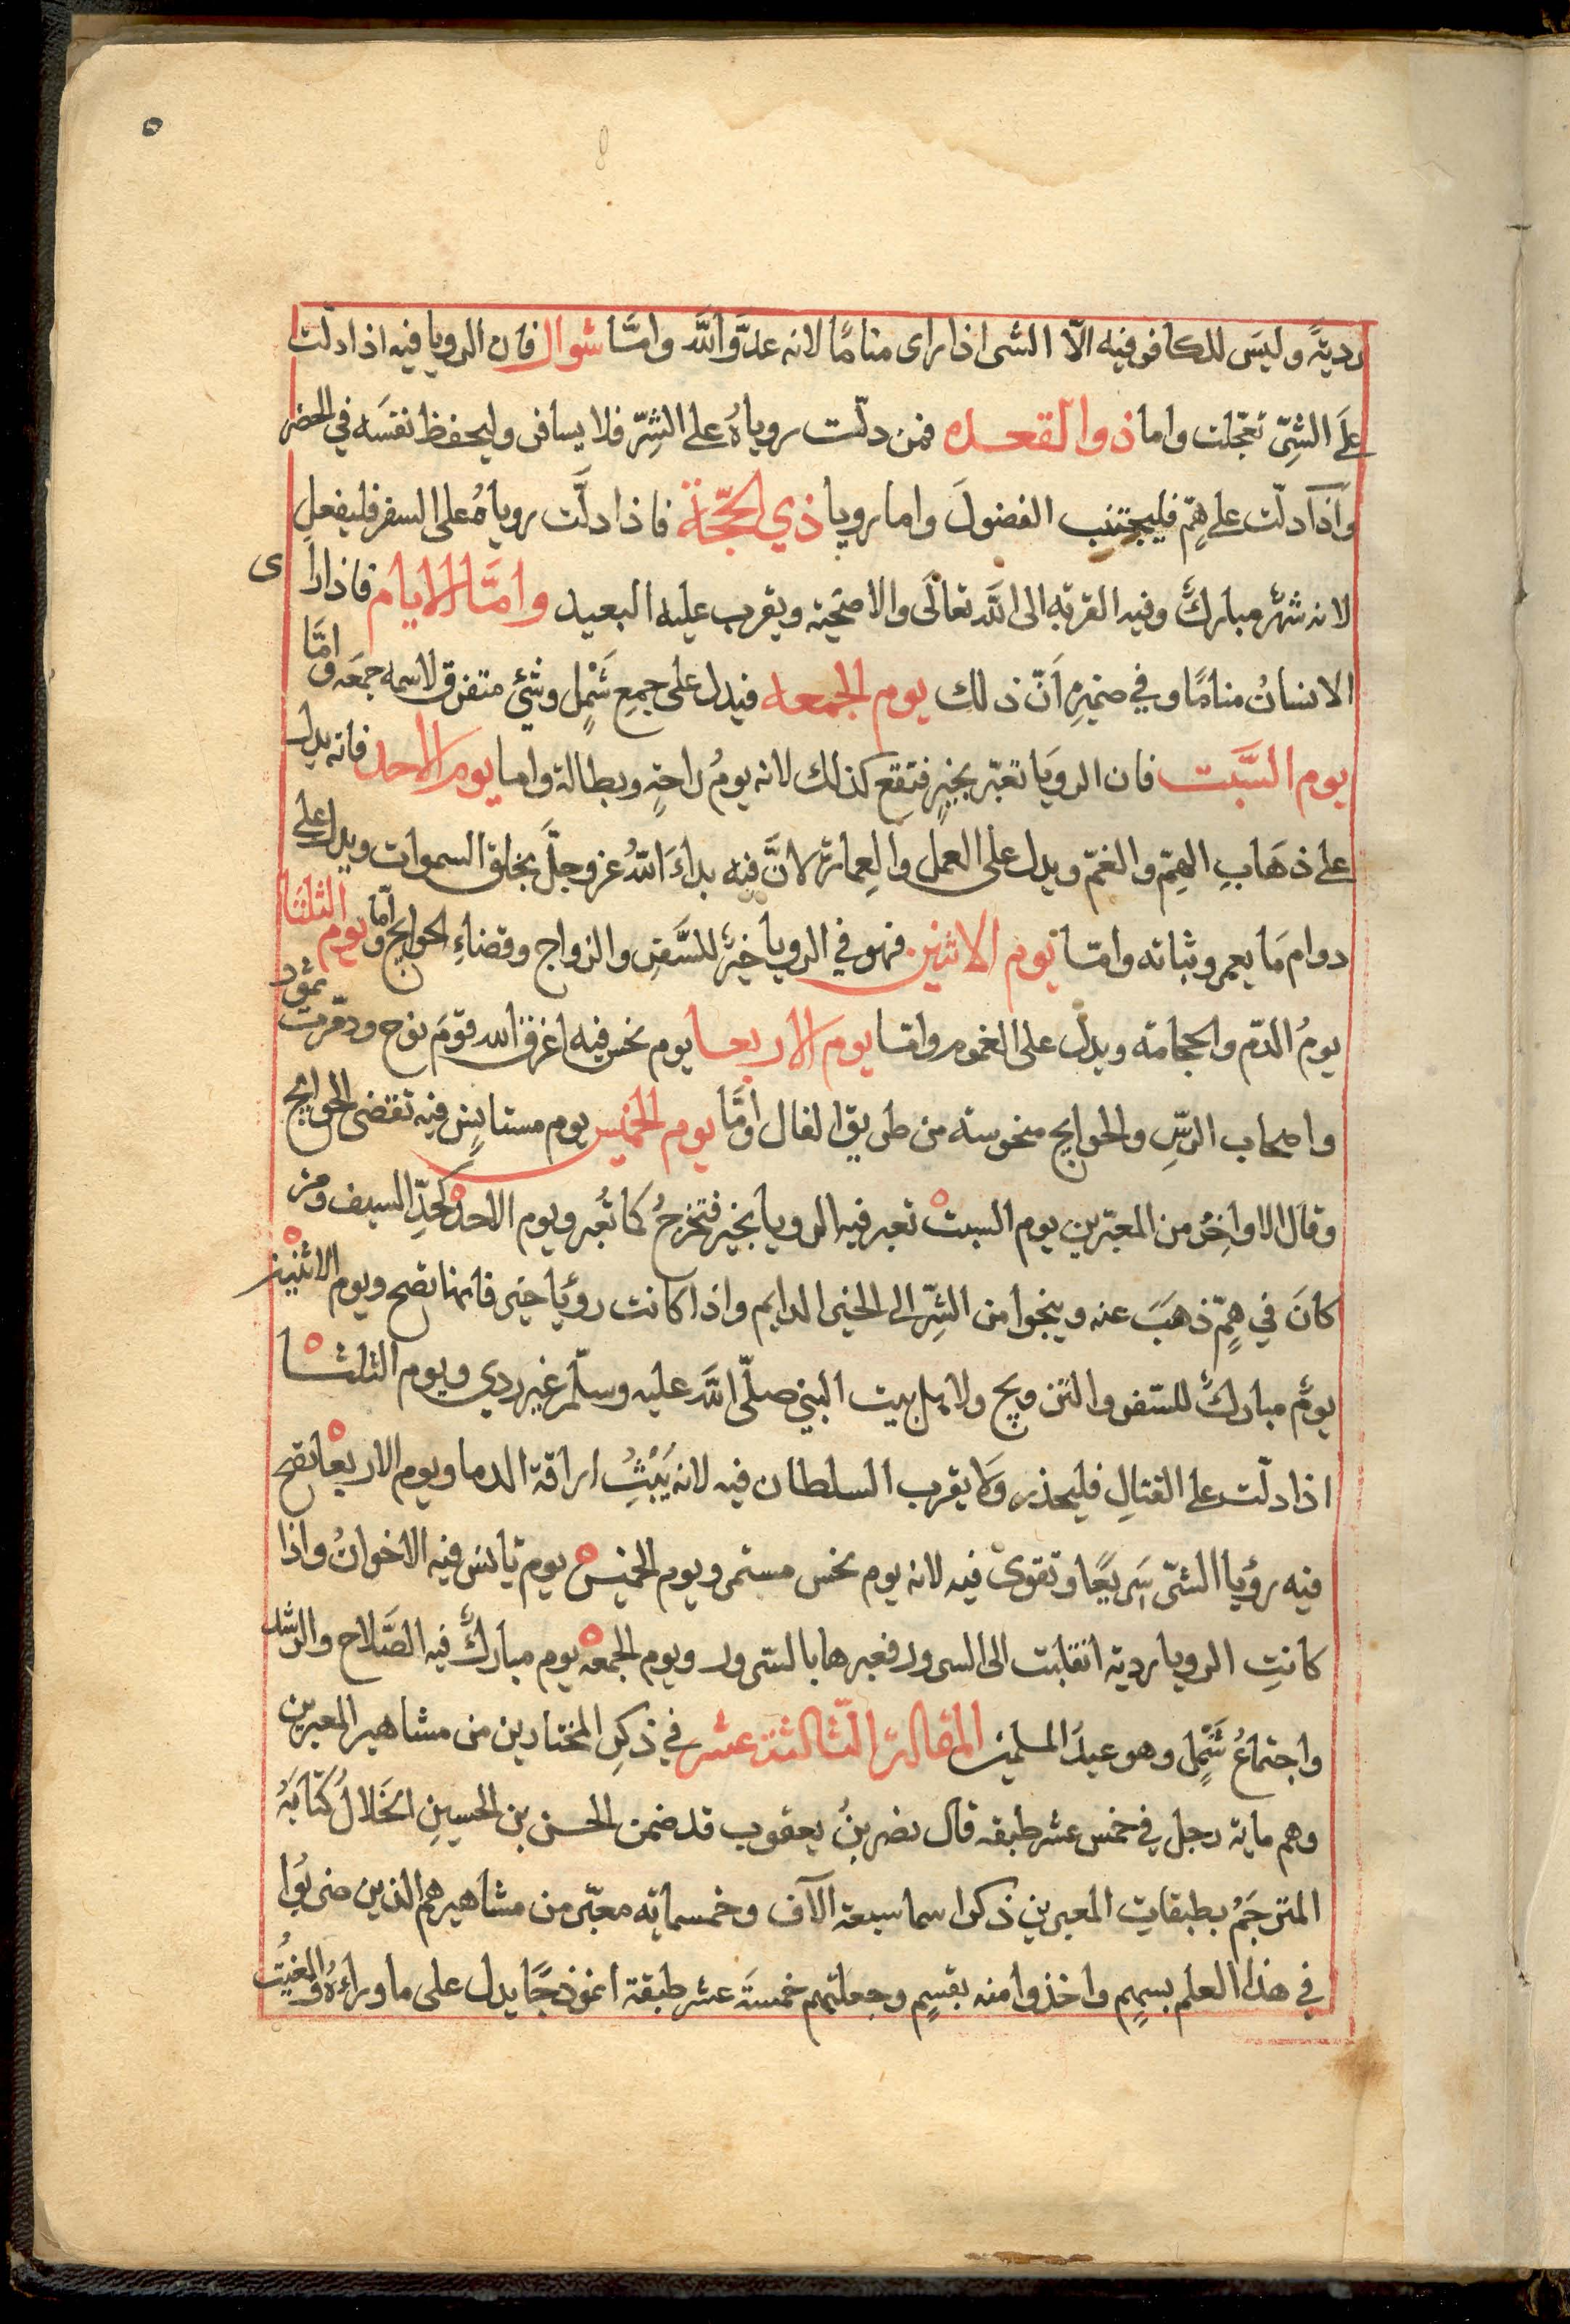 رديةً وليسَ للكافر فيه الّا الشر اذا راى مناما لانه عدوُّ اللّه وامّا شوال فان الرويا فيه اذا دلّت
علَى الشرِّ تعجّلت واما ذوا القعده فمن دلّت روياهُ على الشرِّ فلا يسافر وليحفظ نفسَه في الحضر
واذا دلّت على همٍّ فليجتنب الفضولَ واما رويا ذي الحجّة فاذا دلَّت روياهُ على السفر فليفعل
لانه شهرٌ مباركٌ وفيه القربة الى اللّه تعالَى والاضحية ويقرب عليه البعيد وامَّا الايام فاذا راى
الانسانُ مناما وفي ضميرِه اَنّ ذلك يوم الجمعه فيدل على جمعِ شَمْلٍ وشئٍ متفرق لاسمه جمعَه وامَّا
يوم السَّبت فان الرويَا تعبّر بخيرٍ فتقع كذلك لانه يومُ راحةٍ وبطالة واما يوم الاحد فانه يدل
على ذهَابِ الهمِّ والغمّ ويدل على العمل والعِمارة لانَّ فيه بداءَ اللّهُ عز وجلَّ بخلق السموات ويدل على
دوام مَا يعمر وثباته وامّا يوم الاثنين فهو في الرويا خيرٌ للسَّفرِ والزواج وقضاءِ الحوايج وامّا يوم الثلثا
يومُ الدّم والحجامة ويدل على الغموم وامّا يوم الاربعا يوم نحس فيه اغرق الله قومَ نوح ودمّرت ثمود
واصحاب الرسِّ والحوايج منحوسة من طريق الفال وامَّا يوم الخميس يوم مستانِس فيه تقتضى الحوايج
وقال الاواخرُ من المعبّرين يوم السبت تعبر فيه الرويا بخير فتخرجُ كما تُعبر ويوم الاحد كحدِّ السيف ومن
كانَ في همٍّ ذهَبَ عنه وينجوا من الشرِّ الى الخير الدايم واذا كانت رؤيا خير فانها تصح ويوم الاثنين
يومٌ مباركٌ للسّفر والتزويج ولاهل بيت النبي صلّى اللَّه عليه وسلّم غير ردي ويوم الثلثا
اذا دلّت على القتالِ فليحذر وَلا يقرب السلطان فيه لانه اراقة الدما ويوم الاربعا تصح
فيه رؤيا الشرّ سَريعًا وتقوى فيه لانه يوم نحس مستمر ويوم الخميس يوم يانس فيه الاخوانُ واذا
كانتِ الرويا ردية انقلبت الى السرور فعبرها بالسرور ويوم الجمعه يوم مباركٌ فيه الصَّلاح والرشد
واجتماعُ شَمْلٍ وهو عيدُ المسلمين المقالة الثّالثة عشر في ذكرِ المختارين من مشاهير المعبرين
وهم ماية رجل في خمس عشر طبقه قال نصر بنُ يعقوب قد ضمن الحسن بن الحسين الخلالُ كتابَهُ
المترجَمُ بطبقاتِ المعبرين ذكر اسما سبعة الآف وخمسماية معبّر من مشاهيرهم الذين ضربُوا
في هذا العلم بسهمٍ واخذوا منه بقسمٍ وجعلتهم خمسةَ عشر طبقة انموذجًا يدل على ما وراءهُ